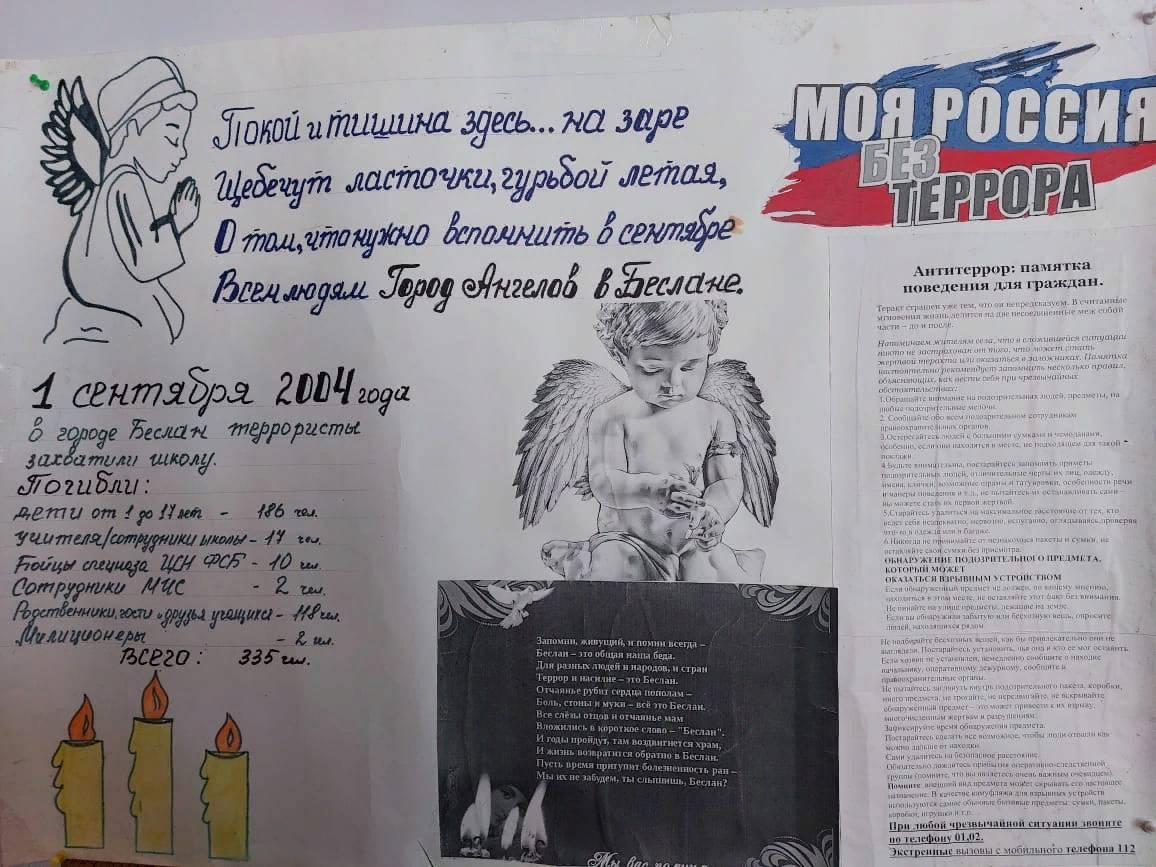 Покой и тишина здесь... на заре
Щебечут ласточки, гурьбой летая,
О том, что нужно вспомнить в сентябре
Всем людям Город Ангелов в Беслане.
МОЯ РОССИЯ
БЕЗ
ТЕРРОРА
1 сентября 2004 года
в городе Беслан террористы
захватили школу.
Погибли:
дети от 1 до 17 лет - 186 чел.
учителя/сотрудники школы - 17 чел.
Бойцы спецназа ЦСН ФСБ - 10 чел.
Сотрудники МЧС - 2 чел.
Родственники, гости и друзья учащихся - 118 чел.
Милиционеры - 2 чел.
ВСЕГО: 335 чел.
Запомни, живущий, и помни всегда –
Беслан – это общая наша беда.
Для разных людей и народов, и стран
Террор и насилие – это Беслан.
Отчаянье рубит сердца пополам –
Боль, стоны и муки – всё это Беслан.
Все слёзы отцов и отчаянье мам
Вложились в короткое слово – "Беслан".
И годы пройдут, там воздвигнется храм,
И жизнь возвратится обратно в Беслан.
Пусть время притупит болезненность ран –
Мы их не забудем, ты слышишь, Беслан?
Мы вас
Антитеррор: памятка
поведения для граждан.
Теракт страшен уже тем, что он непредсказуем. В считанные
мгновения жизнь делится на две несоединенные меж собой
части – до и после.
Напоминаем жителям села, что в сложившейся ситуации
никто не застрахован от того, что может стать
жертвой теракта или оказаться в заложниках. Памятка
настоятельно рекомендует запомнить несколько правил,
объясняющих, как вести себя при чрезвычайных
обстоятельствах:
1.Обращайте внимание на подозрительных людей, предметы, на
любые подозрительные мелочи.
2. Сообщайте обо всем подозрительном сотрудникам
правоохранительных органов.
3.Остерегайтесь людей с большими сумками и чемоданами,
особенно, если они находятся в месте, не подходящем для такой
поклажи.
4.Будьте внимательны, постарайтесь запомнить приметы
подозрительных людей, отличительные черты их лиц, одежду,
имена, клички, возможные шрамы и татуировки, особенности речи
и манеры поведения и т.д., не пытайтесь их останавливать сами –
вы можете стать их первой жертвой.
5.Старайтесь удалиться на максимальное расстояние от тех, кто
ведет себя неадекватно, нервозно, испуганно, оглядываясь, проверяя
что-то в одежде или в багаже.
6.Никогда не принимайте от незнакомцев пакеты и сумки, не
оставляйте свои сумки без присмотра.
ОБНАРУЖЕНИЕ ПОДОЗРИТЕЛЬНОГО ПРЕДМЕТА,
КОТОРЫЙ МОЖЕТ
ОКАЗАТЬСЯ ВЗРЫВНЫМ УСТРОЙСТВОМ
Если обнаруженный предмет не должен, по вашему мнению,
находиться в этом месте, не оставляйте этот факт без внимания.
Не пинайте на улице предметы, лежащие на земле.
Если вы обнаружили забытую или бесхозную вещь, опросите
людей, находящихся рядом.
Не подбирайте бесхозных вещей, как бы привлекательно они не
выглядели. Постарайтесь установить, чья она и кто ее мог оставить.
Если хозяин не установлен, немедленно сообщите о находке
начальнику, оперативному дежурному, сообщите в
правоохранительные органы.
Не пытайтесь заглянуть внутрь подозрительного пакета, коробки,
иного предмета, не трогайте, не передвигайте, не вскрывайте
обнаруженный предмет – это может привести к их взрыву,
многочисленным жертвам и разрушениям.
Зафиксируйте время обнаружения предмета.
Постарайтесь сделать все возможное, чтобы люди отошли как
можно дальше от находки.
Сами удалитесь на безопасное расстояние.
Обязательно дождитесь прибытия оперативно-следственной
группы (помните, что вы являетесь очень важным очевидцем).
Помните: внешний вид предмета может скрывать его настоящее
назначение. В качестве камуфляжа для взрывных устройств
используются самые обычные бытовые предметы: сумки, пакеты,
коробки, игрушки и т.п.
При любой чрезвычайной ситуации звоните
по телефону 01,02.
Экстренные вызовы с мобильного телефона 112